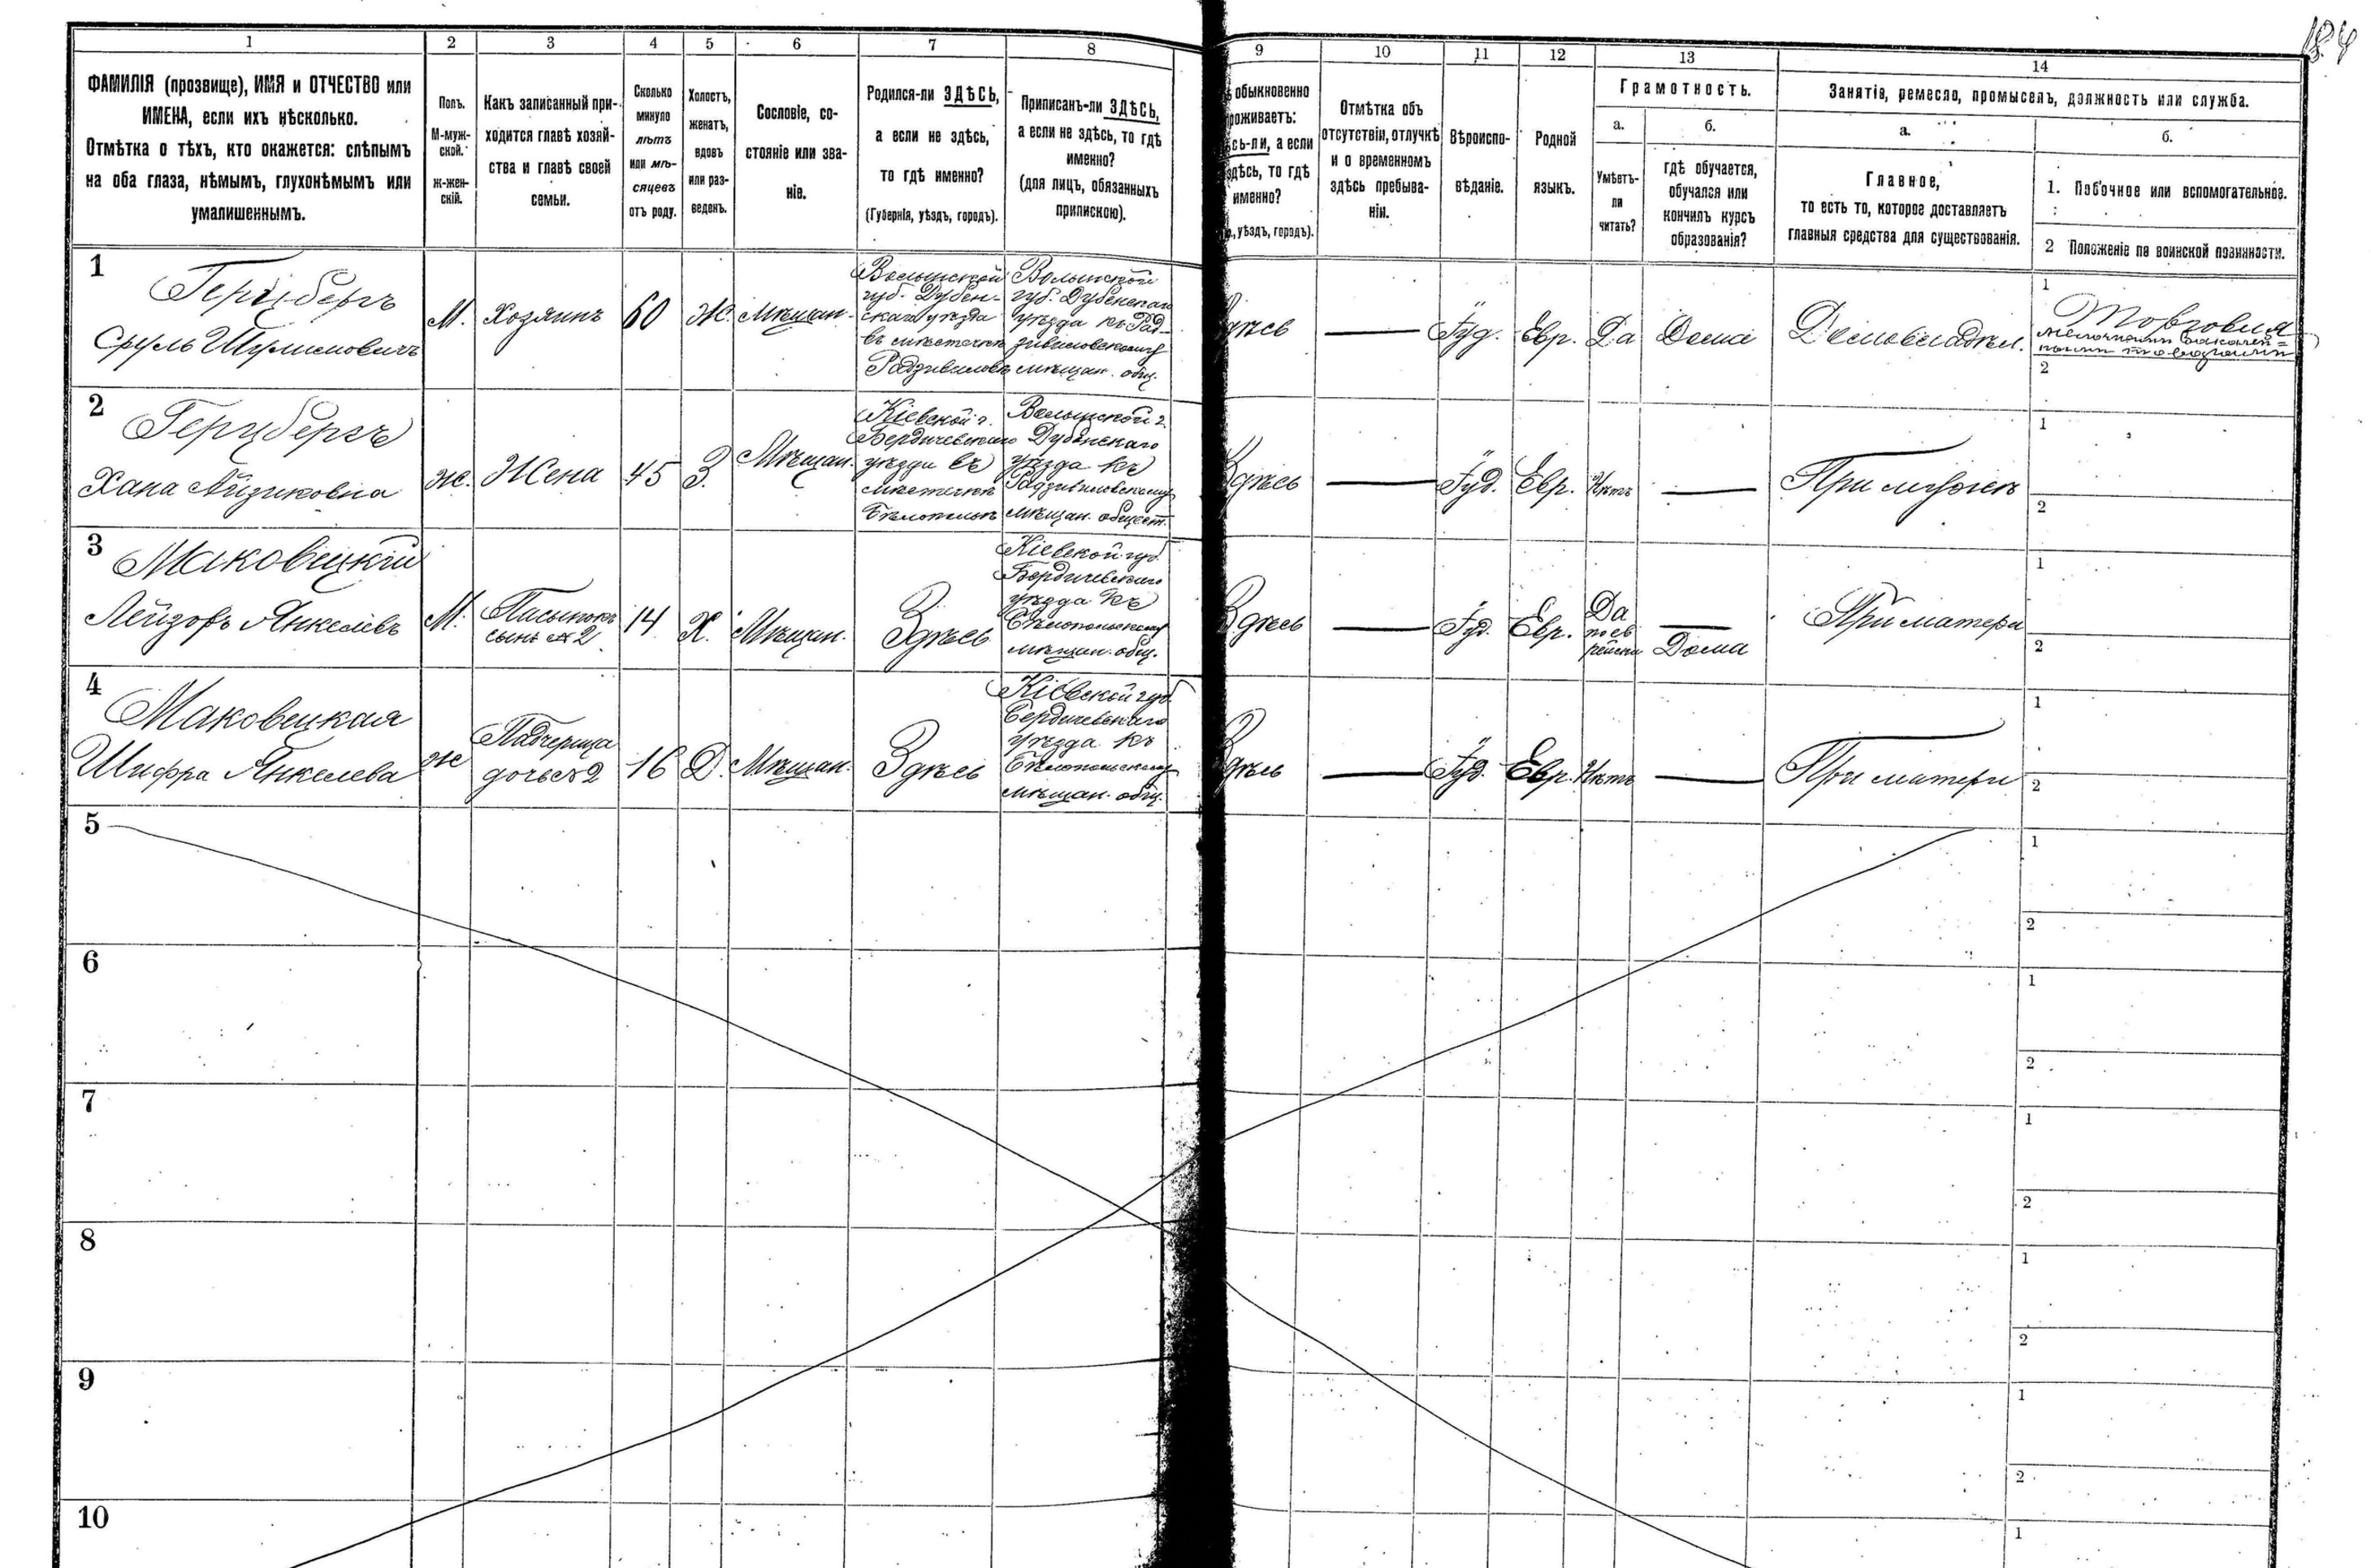 184
1
2
3
4
5
6
7
8
9
10
11
12
13
14
ФАМИЛІЯ (прозвище), ИМЯ и ОТЧЕСТВО или
ИМЕНА, если ихъ нѣсколько.
Отмѣтка о тѣхъ, кто окажется: слѣпымъ
на оба глаза, нѣмымъ, глухонѣмымъ или
умалишеннымъ.
Полъ.
М-муж-
ской.
Ж-жен-
скій.
Какъ записанный при-
ходится главѣ хозяй-
ства и главѣ своей
семьи.
Сколько
минуло
лѣтъ
или мѣ-
сяцевъ
отъ роду.
Холостъ,
женатъ,
вдовъ
или раз-
веденъ.
Сословіе, со-
стояніе или зва-
ніе.
Родился-ли ЗДѢСЬ,
а если не здѣсь,
то гдѣ именно?
(Губернія, уѣздъ, городъ).
Приписанъ-ли ЗДѢСЬ,
а если не здѣсь, то гдѣ
именно?
(для лицъ, обязанныхъ
припискою).
обыкновенно
роживаетъ:
сь-ли, а если
здѣсь, то гдѣ
именно?
уѣздъ, городъ).
Отмѣтка объ
отсутствіи, отлучкѣ
и о временномъ
здѣсь пребыва-
ніи.
Вѣроиспо-
вѣданіе.
Родной
языкъ.
Грамотность.
а.
Умѣетъ-
ли
читать?
б.
гдѣ обучается,
обучался или
кончилъ курсъ
образованія?
Занятія, ремесло, промыселъ, должность или служба.
а.
Главное,
то есть то, которое доставляетъ
главныя средства для существованія.
б.
1. Побочное или вспомогательное.
2 Положеніе по воинской повинности.
1
Герцбергъ
Сруль Шулимовичъ
М.
Хозяинъ
60
Ж.
Мѣщан.
Волынской
губ. Дубен-
скаго уѣзда
въ мѣстечкѣ
Радзивиловѣ
Волынской
губ. Дубенскаго
уѣзда къ Рад-
зивиловскому
мѣщан. общ.
Здѣсь
Іуд.
Евр.
Да
Дома
Домовладѣл.
1
Торговля
мелочными бакалей=
ными товарами
2
2
Герцбергъ
Хана Айзиковна
Ж.
Жена
45
З.
Мѣщан.
Кіевской г.
Бердичевскаго
уѣзда въ
мѣстечкѣ
Бѣлопольѣ
Волынской г.
Дубенскаго
уѣзда къ
Радзивиловскому
мѣщан. общест.
Здѣсь
Іуд.
Евр.
Нѣтъ
При мужѣ
1
2
3
Маковецкій
Лейзоръ Янкелевъ
М.
Пасынокъ
сынъ 2
14
Х.
Мѣщан.
Здѣсь
Кіевской губ.
Бердичевскаго
уѣзда къ
Бѣлопольскому
мѣщан. общ.
Здѣсь
Іуд.
Евр.
Да
по ев
рейски
Дома
При матери
1
2
4
Маковецкая
Шифра Янкелева
Ж
Падчерица
дочь 2
16
Д.
Мѣщан.
Здѣсь
Кіевской губ.
Бердичевскаго
уѣзда къ
Бѣлопольскому
мѣщан. общ.
Здѣсь
Іуд.
Евр.
Нѣтъ
При матери
1
2
5
1
2
6
1
2
7
1
2
8
1
2
9
1
2
10
1